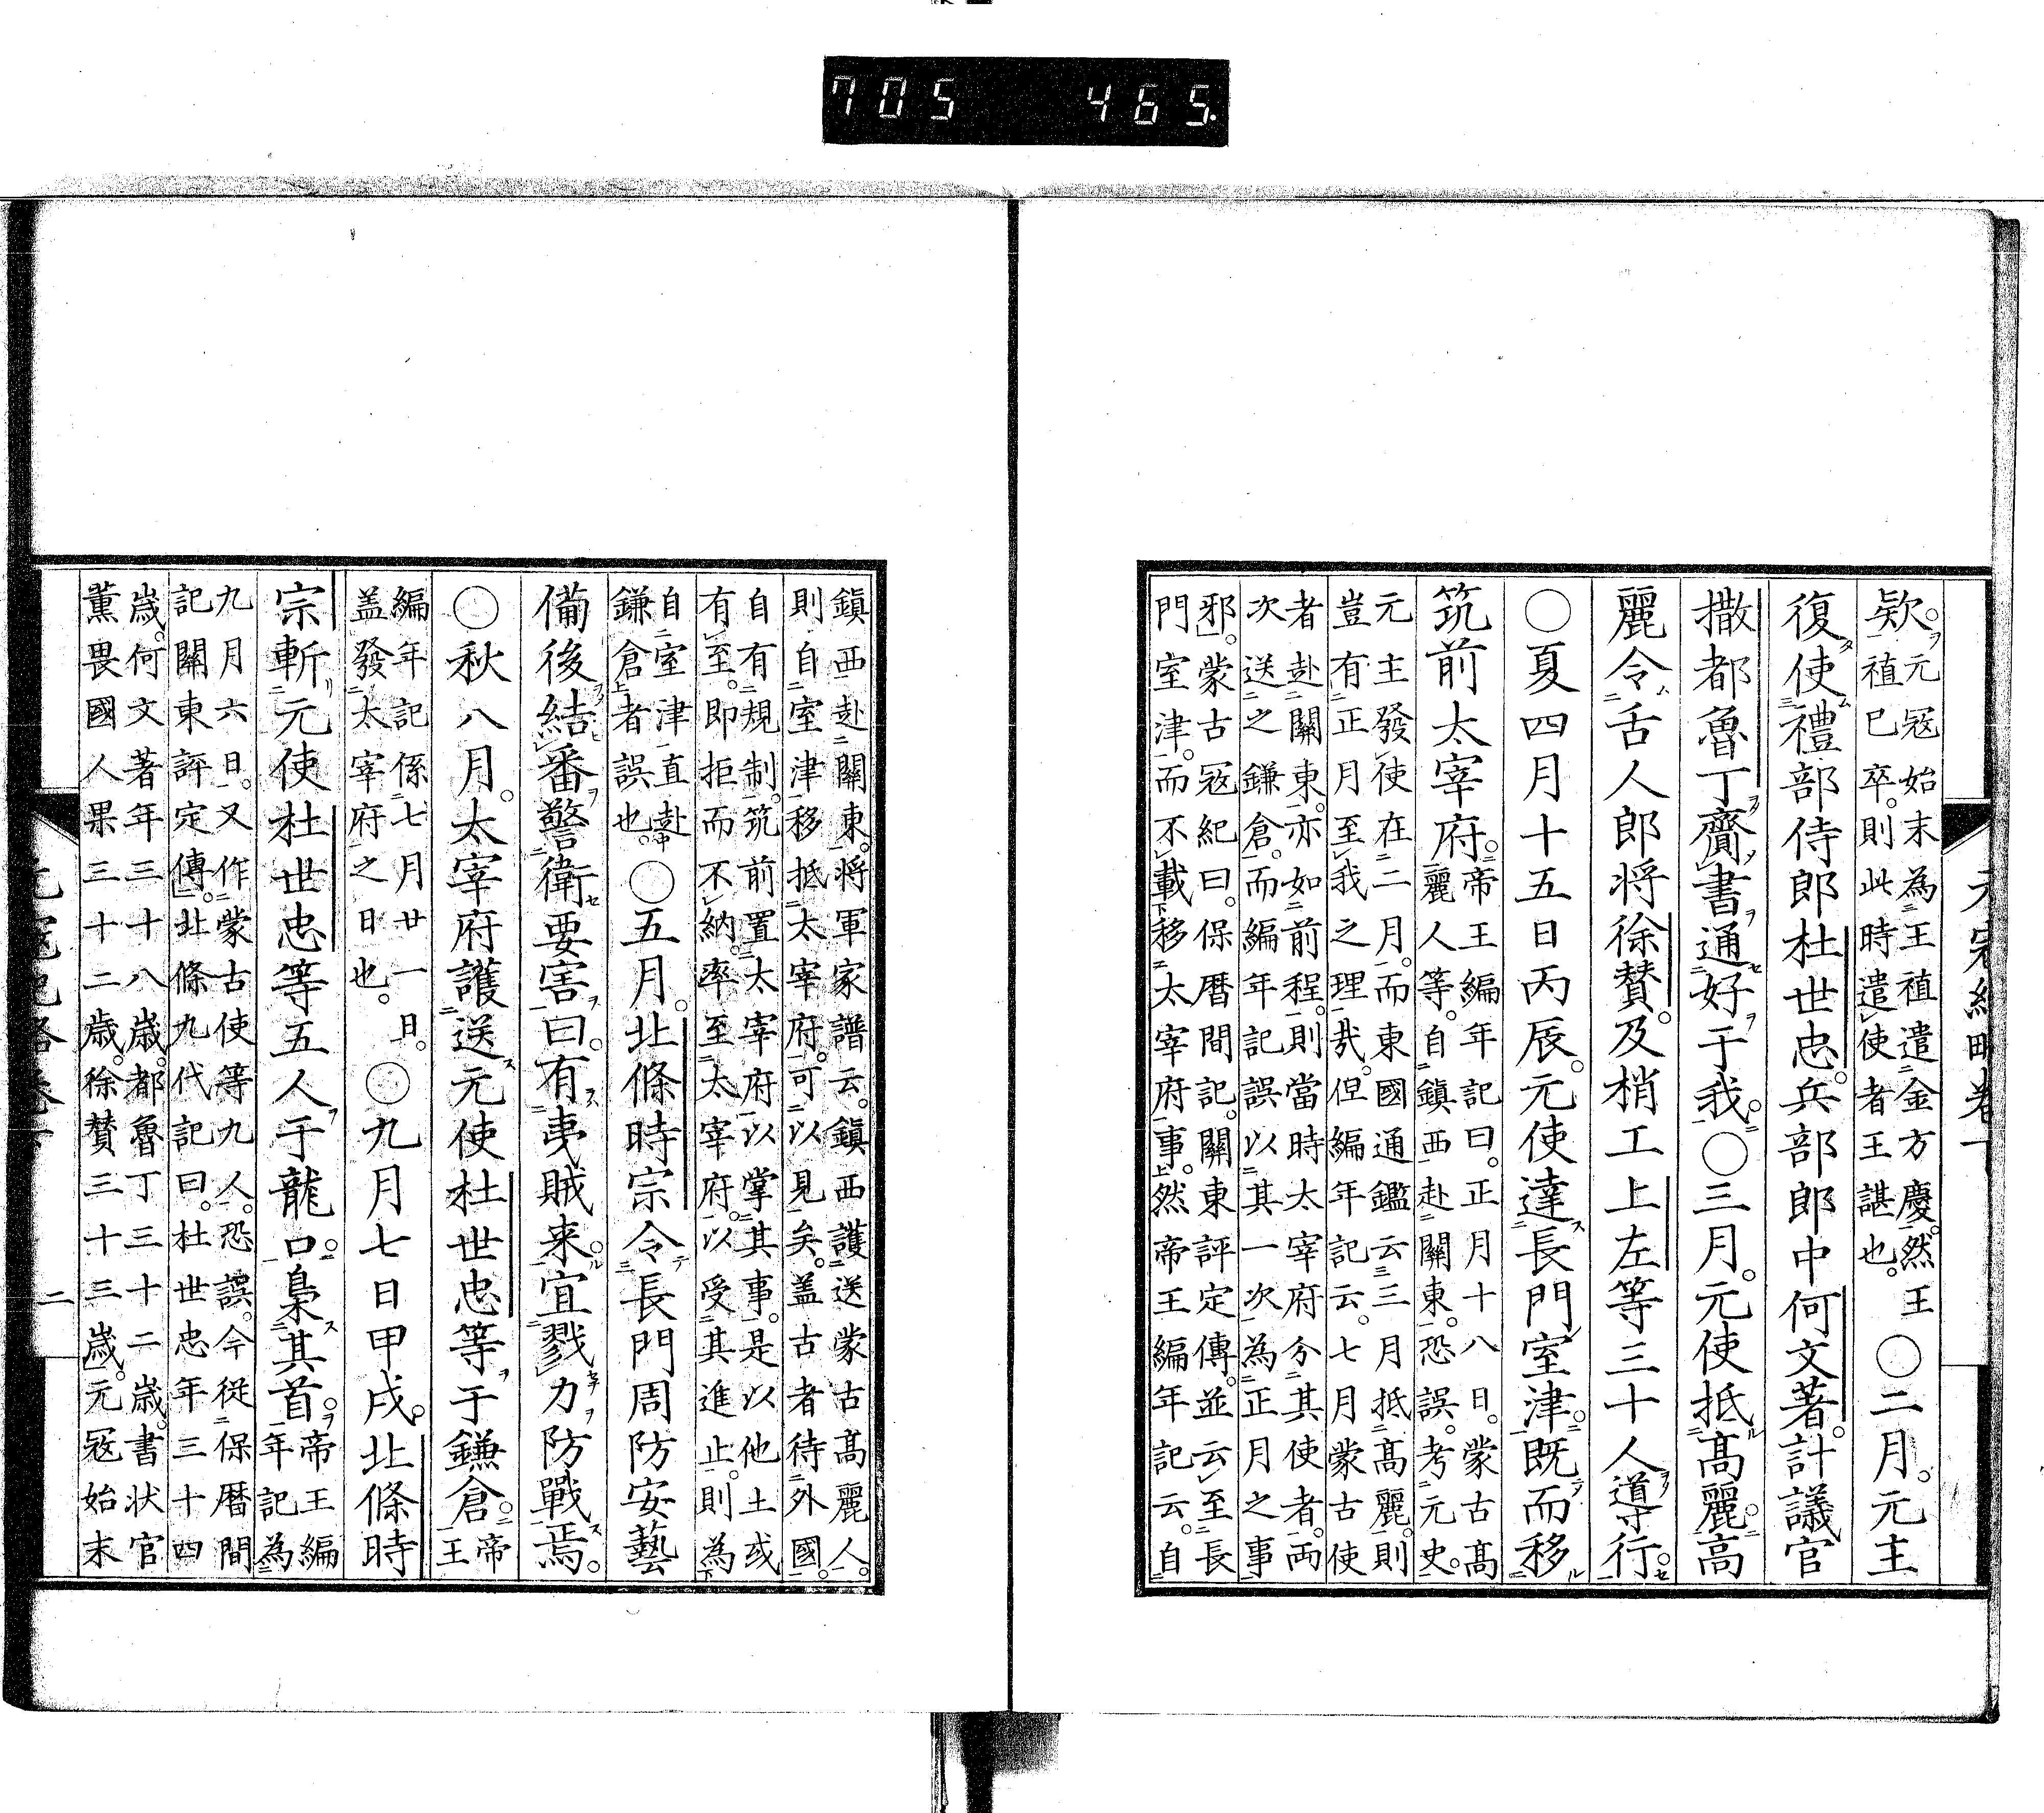 705 465.
欵。元寇始末為王植遣金方慶。然王
植已卒。則此時遣使者王諶也。
○二月。元主
復使禮部侍郎杜世忠。兵部郎中何文著。計議官
撒都魯丁齎書通好于我。○三月。元使抵高麗。高
麗令舌人郎将徐賛。及梢工上左等三十人導行。
○夏四月十五日丙辰。元使達長門室津。既而移
筑前太宰府。
帝王編年記曰。正月十八日。蒙古髙
麗人等。自鎮西赴關東。恐誤。考元史。
元主發使在二月。而東國通鑑云三月抵髙麗。則
豈有正月至我之理哉。但編年記云。七月蒙古使
者赴關東。亦如前程。則當時太宰府分其使者。両
次送之鎌倉。而編年記誤以其一次為正月之事
邪。蒙古寇紀曰。保暦間記。關東評定傳。並云至長
門室津。而不載移太宰府事。然帝王編年記云。自
鎮西赴關東。将軍家譜云。鎮西護送蒙古髙麗人。
則自室津移抵太宰府。可以見矣。盖古者待外國。
自有規制。筑前置太宰府以掌其事。是以他土或
有至。即拒而不納。率至太宰府。以受其進止。則為
自室津直赴
鎌倉者誤也。
○五月。北條時宗令長門周防安藝
備後結番警衛要害。曰。有夷賊来。宜戮力防戰焉。
○秋八月。太宰府護送元使杜世忠等于鎌倉。
帝
王
編年記係七月廿一日。
盖發太宰府之日也。
○九月七日甲戌。北條時
宗斬元使杜世忠等五人于龍口。梟其首。
帝王編
年記為
九月六日。又作蒙古使等九人。恐誤。今従保暦間
記關東評定傳。北條九代記曰。杜世忠年三十四
歳。何文著年三十八歳。都魯丁三十二歳。書状官
薫畏國人果三十二歳。徐賛三十三歳。元寇始末
二